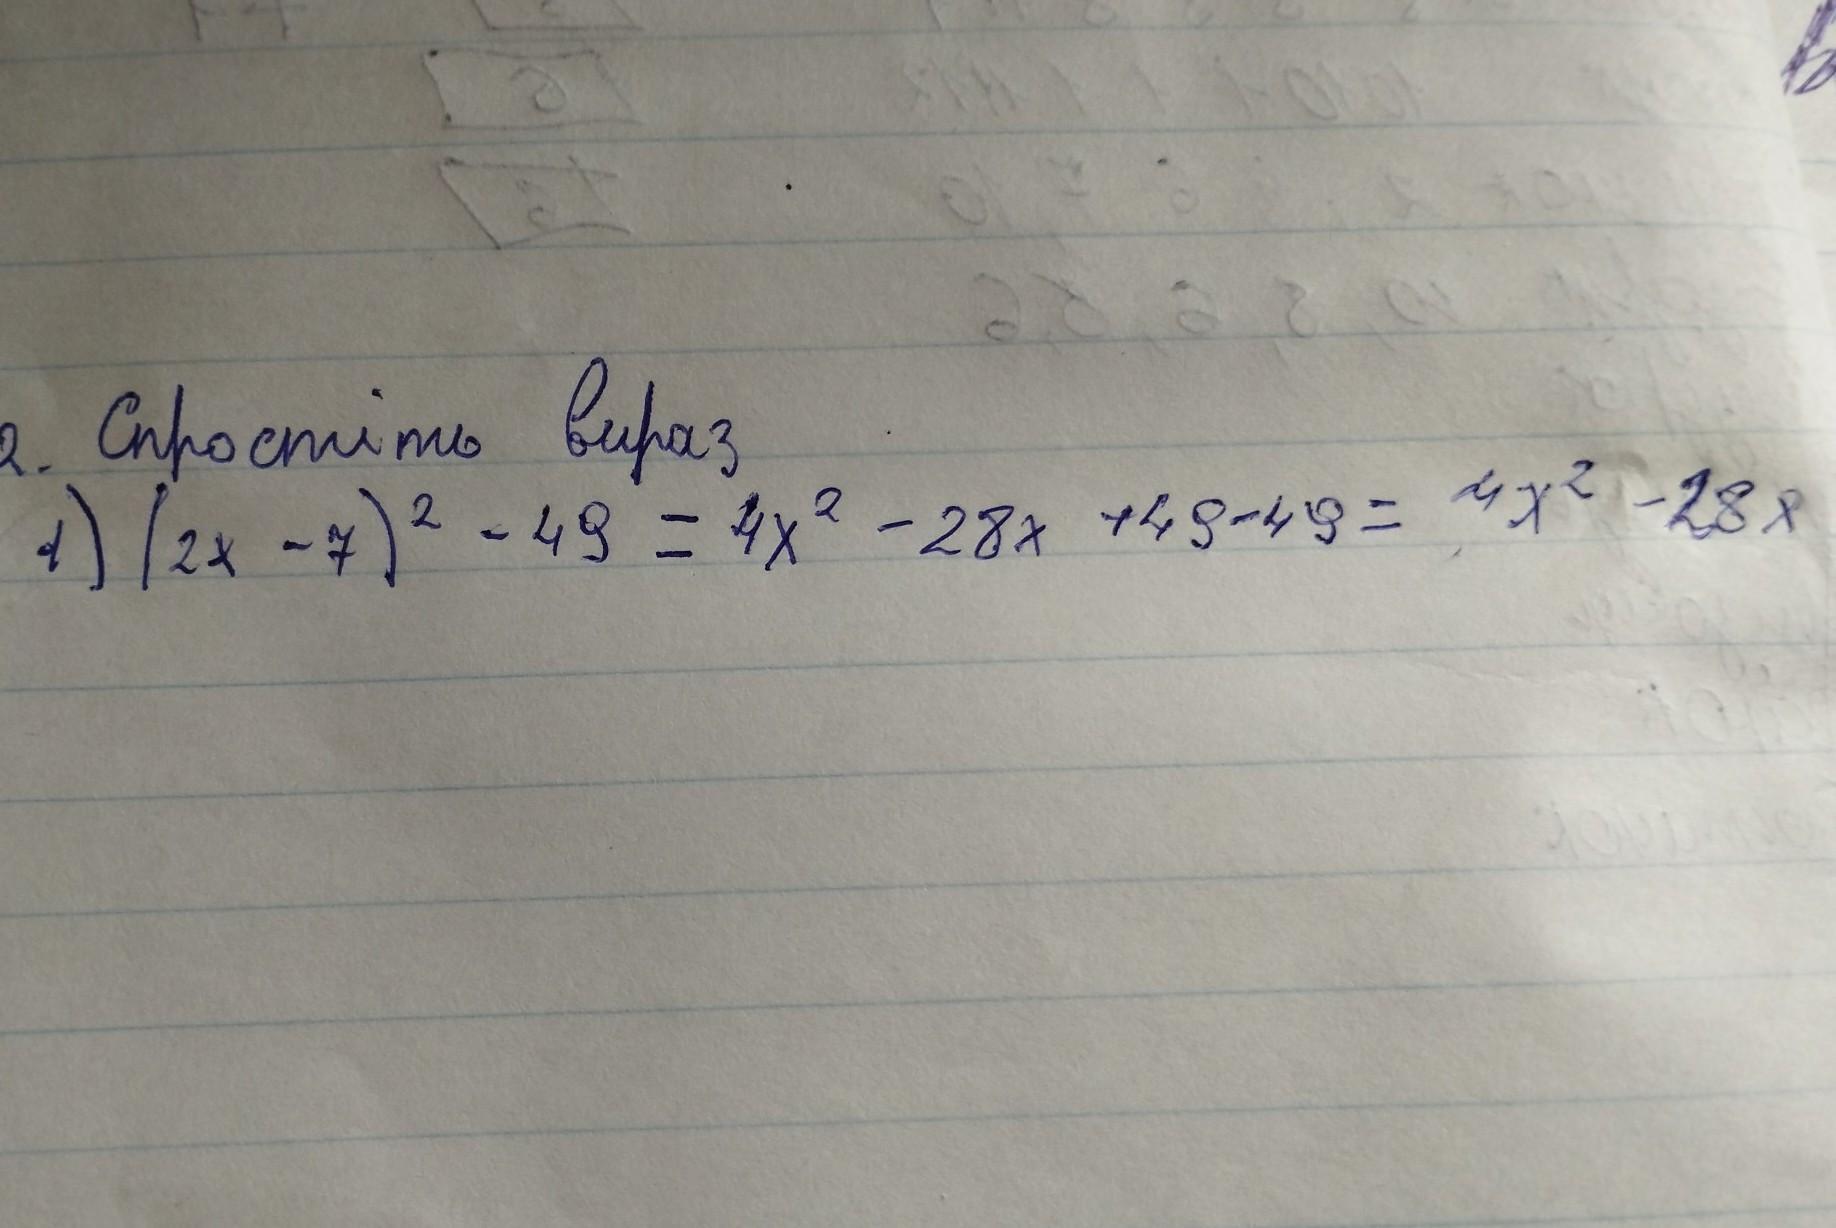 2. Спростіть вираз
1) (2x - 7)² - 49 = 4x² - 28x + 49 - 49 = 4x² - 28x